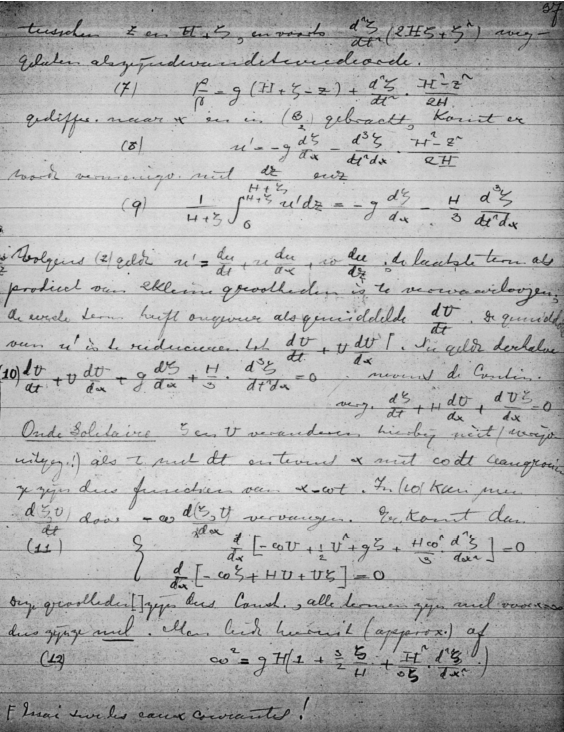 37
tusschen z en H+ζ, en voorts d²ζ/dt² (2Hζ+ζ²) weg-
gelaten als zijnde van de tweede orde.
(7) p/ρ = g (H+ζ−z) + d²ζ/dt² · (H²−z²)/2H
gediffer. naar x en in (3) gebracht, komt er
(8) u' = −g dζ/dx − d³ζ/dt²dx · (H²−z²)/2H
wordt vermenigv. met dz/(H+ζ) enz
(9) 1/(H+ζ) ∫₀^{H+ζ} u'dz = −g dζ/dx − H/3 d³ζ/dt²dx
Volgens (2) geldt u' = du/dt + u du/dx + w du/dz, de laatste term als
product van kleine grootheden is te verwaarloozen,
de eerste term heeft ongeveer als gemiddelde dU/dt De gemidd
van u' is te reduceeren tot dU/dt + U dU/dx. Nu geldt derhalve
(10) dU/dt + U dU/dx + g dζ/dx + H/3 · d³ζ/dt²dx = 0 nevens de Contin.
verg. dζ/dt + H dU/dx + dUζ/dx = 0
Onde Solitaire ζ en U veranderen hierbij niet
als t met dt en tevens x met ωdt aangroeien
ze zijn dus functien van x−ωt. In (10) kan men
d(ζ,U)/dt door −ω d(ζ,U)/dx vervangen. Er komt dan
(11) { d/dx [−ωU + ½U² + gζ + Hω²/3 d²ζ/dx²] = 0
d/dx [−ωζ + HU + Uζ] = 0
Deze grootheden [] zijn dus Const., alle termen zijn nul
dus zijzijn nul. Men leidt hieruit (approx.) af
(12) ω² = gH(1 + 3/2 ζ/H + H²/3ζ · d²ζ/dx²)
Essai sur les eaux courantes!